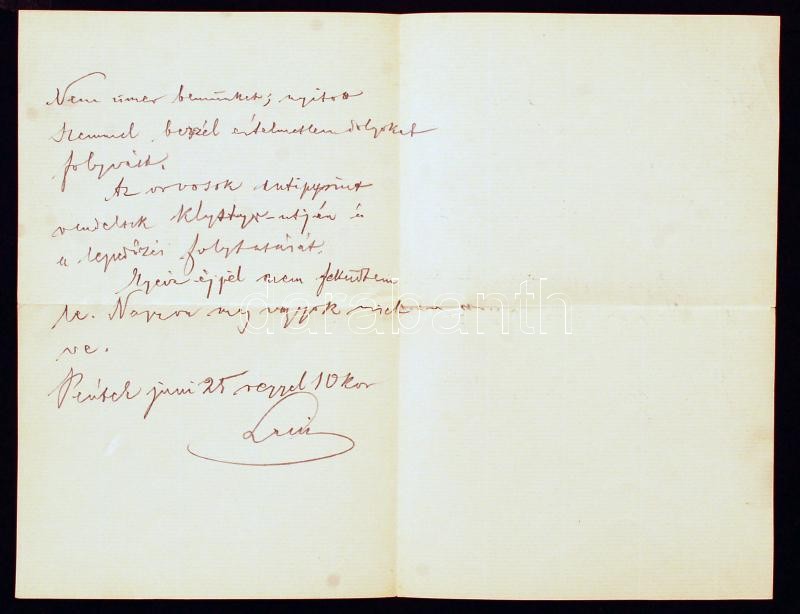 Nem ismer bennünket; nyitott
szemmel beszél értelmetlen dolgokat
folyvást.
Az orvosok antipyrint
rendeltek klystyr-utján és
a lepedőzés folytatását.
éjjel nem feküdtem
le. Nagyon meg vagyok
ve.
Péntek juni 25 reggel 10 kor
darabanth